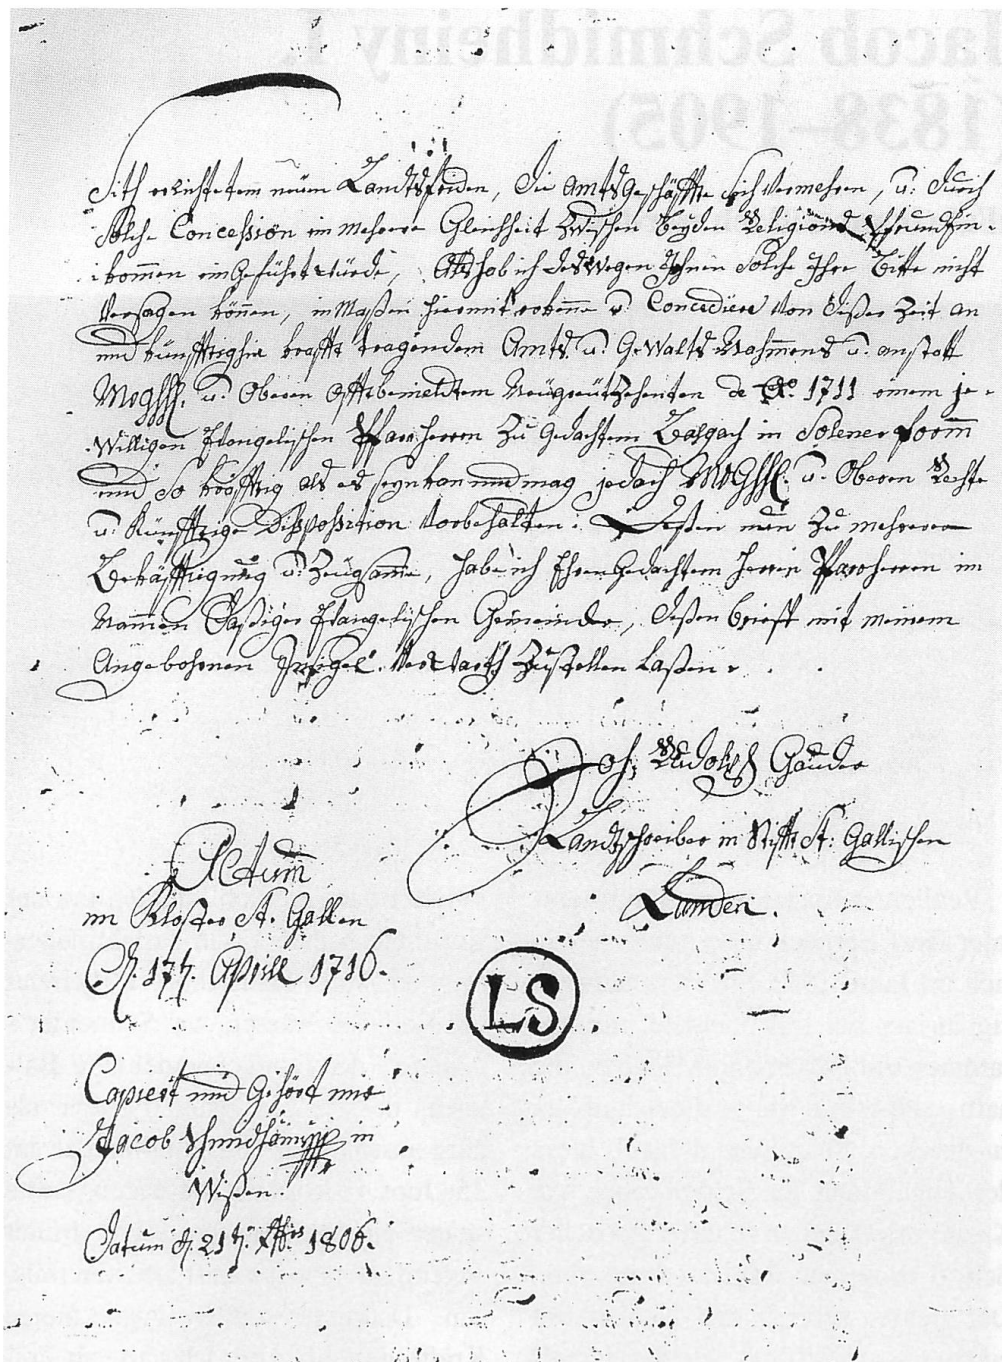 Sith erlichtetem neüen Landtsfriden, die Amts Geschäffte sich Vermehren, u: durch
Solche Concession ein Mehrere Gleichheit Zwischen Beyden Religions Pfrundein-
kommen eingeführt würde, Als hab ich deswegen Ihnen Solche Ihre Bitte nicht
Versagen können, inMaßen hiermit erkenne u: Concediere Von dißer Zeit an
und künfftighin krafft tragendem Amts u: Gewalts Nahmmens u: anstatt
MrGHH. u: Oberen offtbemeldtem Neügreützehenten de Ao. 1711 einem je-
Willigen Evangelischen Pfarrherren Zu Gedachtem Balgach in Solener form
und So kräfftig als es seyn kan und mag jedoch MrGHH. u: Oberen Rechte
u: Künfftige Disposition Vorbehalten. Deßen nun Zu mehrerer
Bekräfftigung u: Zeügsamme, habe ich Ehren Gedachtem Herren Pfarrherren im
Nammen Daßiger Evangelischen Gemeinde, dißen brieff mit meinem
Angebohrnen Insigel Verwarth Zustellen Laßen.
Joh. Rudolph Gander
Landtschreiber in Stifft St: Gallischen
Landen.
Actum
im Kloster St. Gallen
d. 17t. Aprill 1716.
LS
Capiert und Gehört mir
Jacob Schmidhäinÿ in
Wißen.
Datum d. 21t. 1806.
Jacob Schmidheiny I.
(1838–1905)